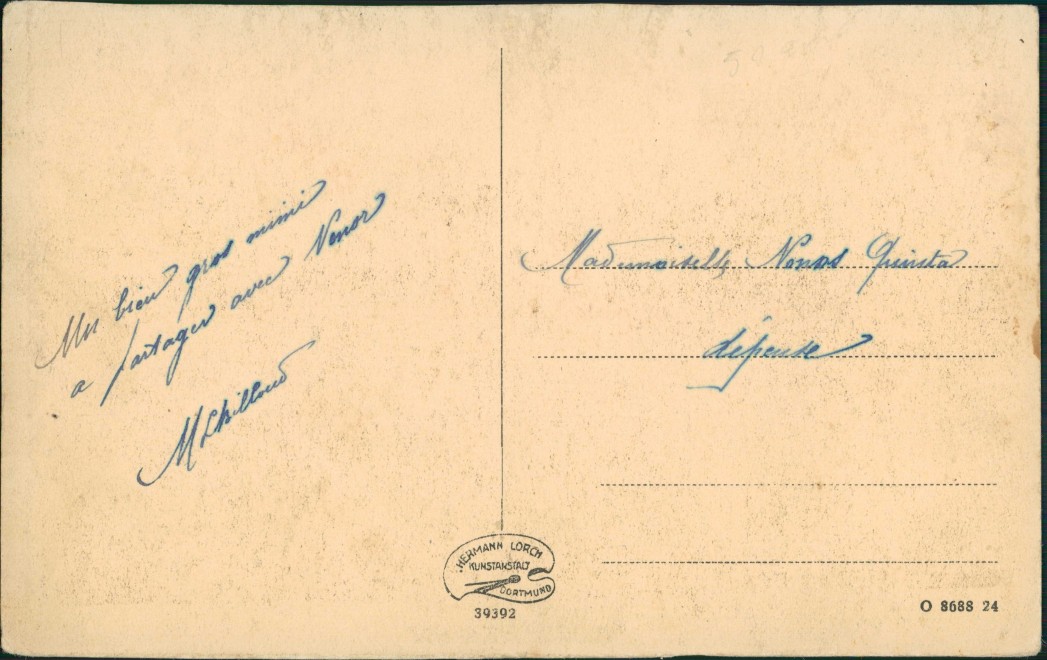 Un bien gros mimi
a partager avec Nenor
M Chilloud
Mademoiselle Nonos
dépense
HERMANN LORCH
KUNSTANSTALT
DORTMUND
39392
O 8688 24